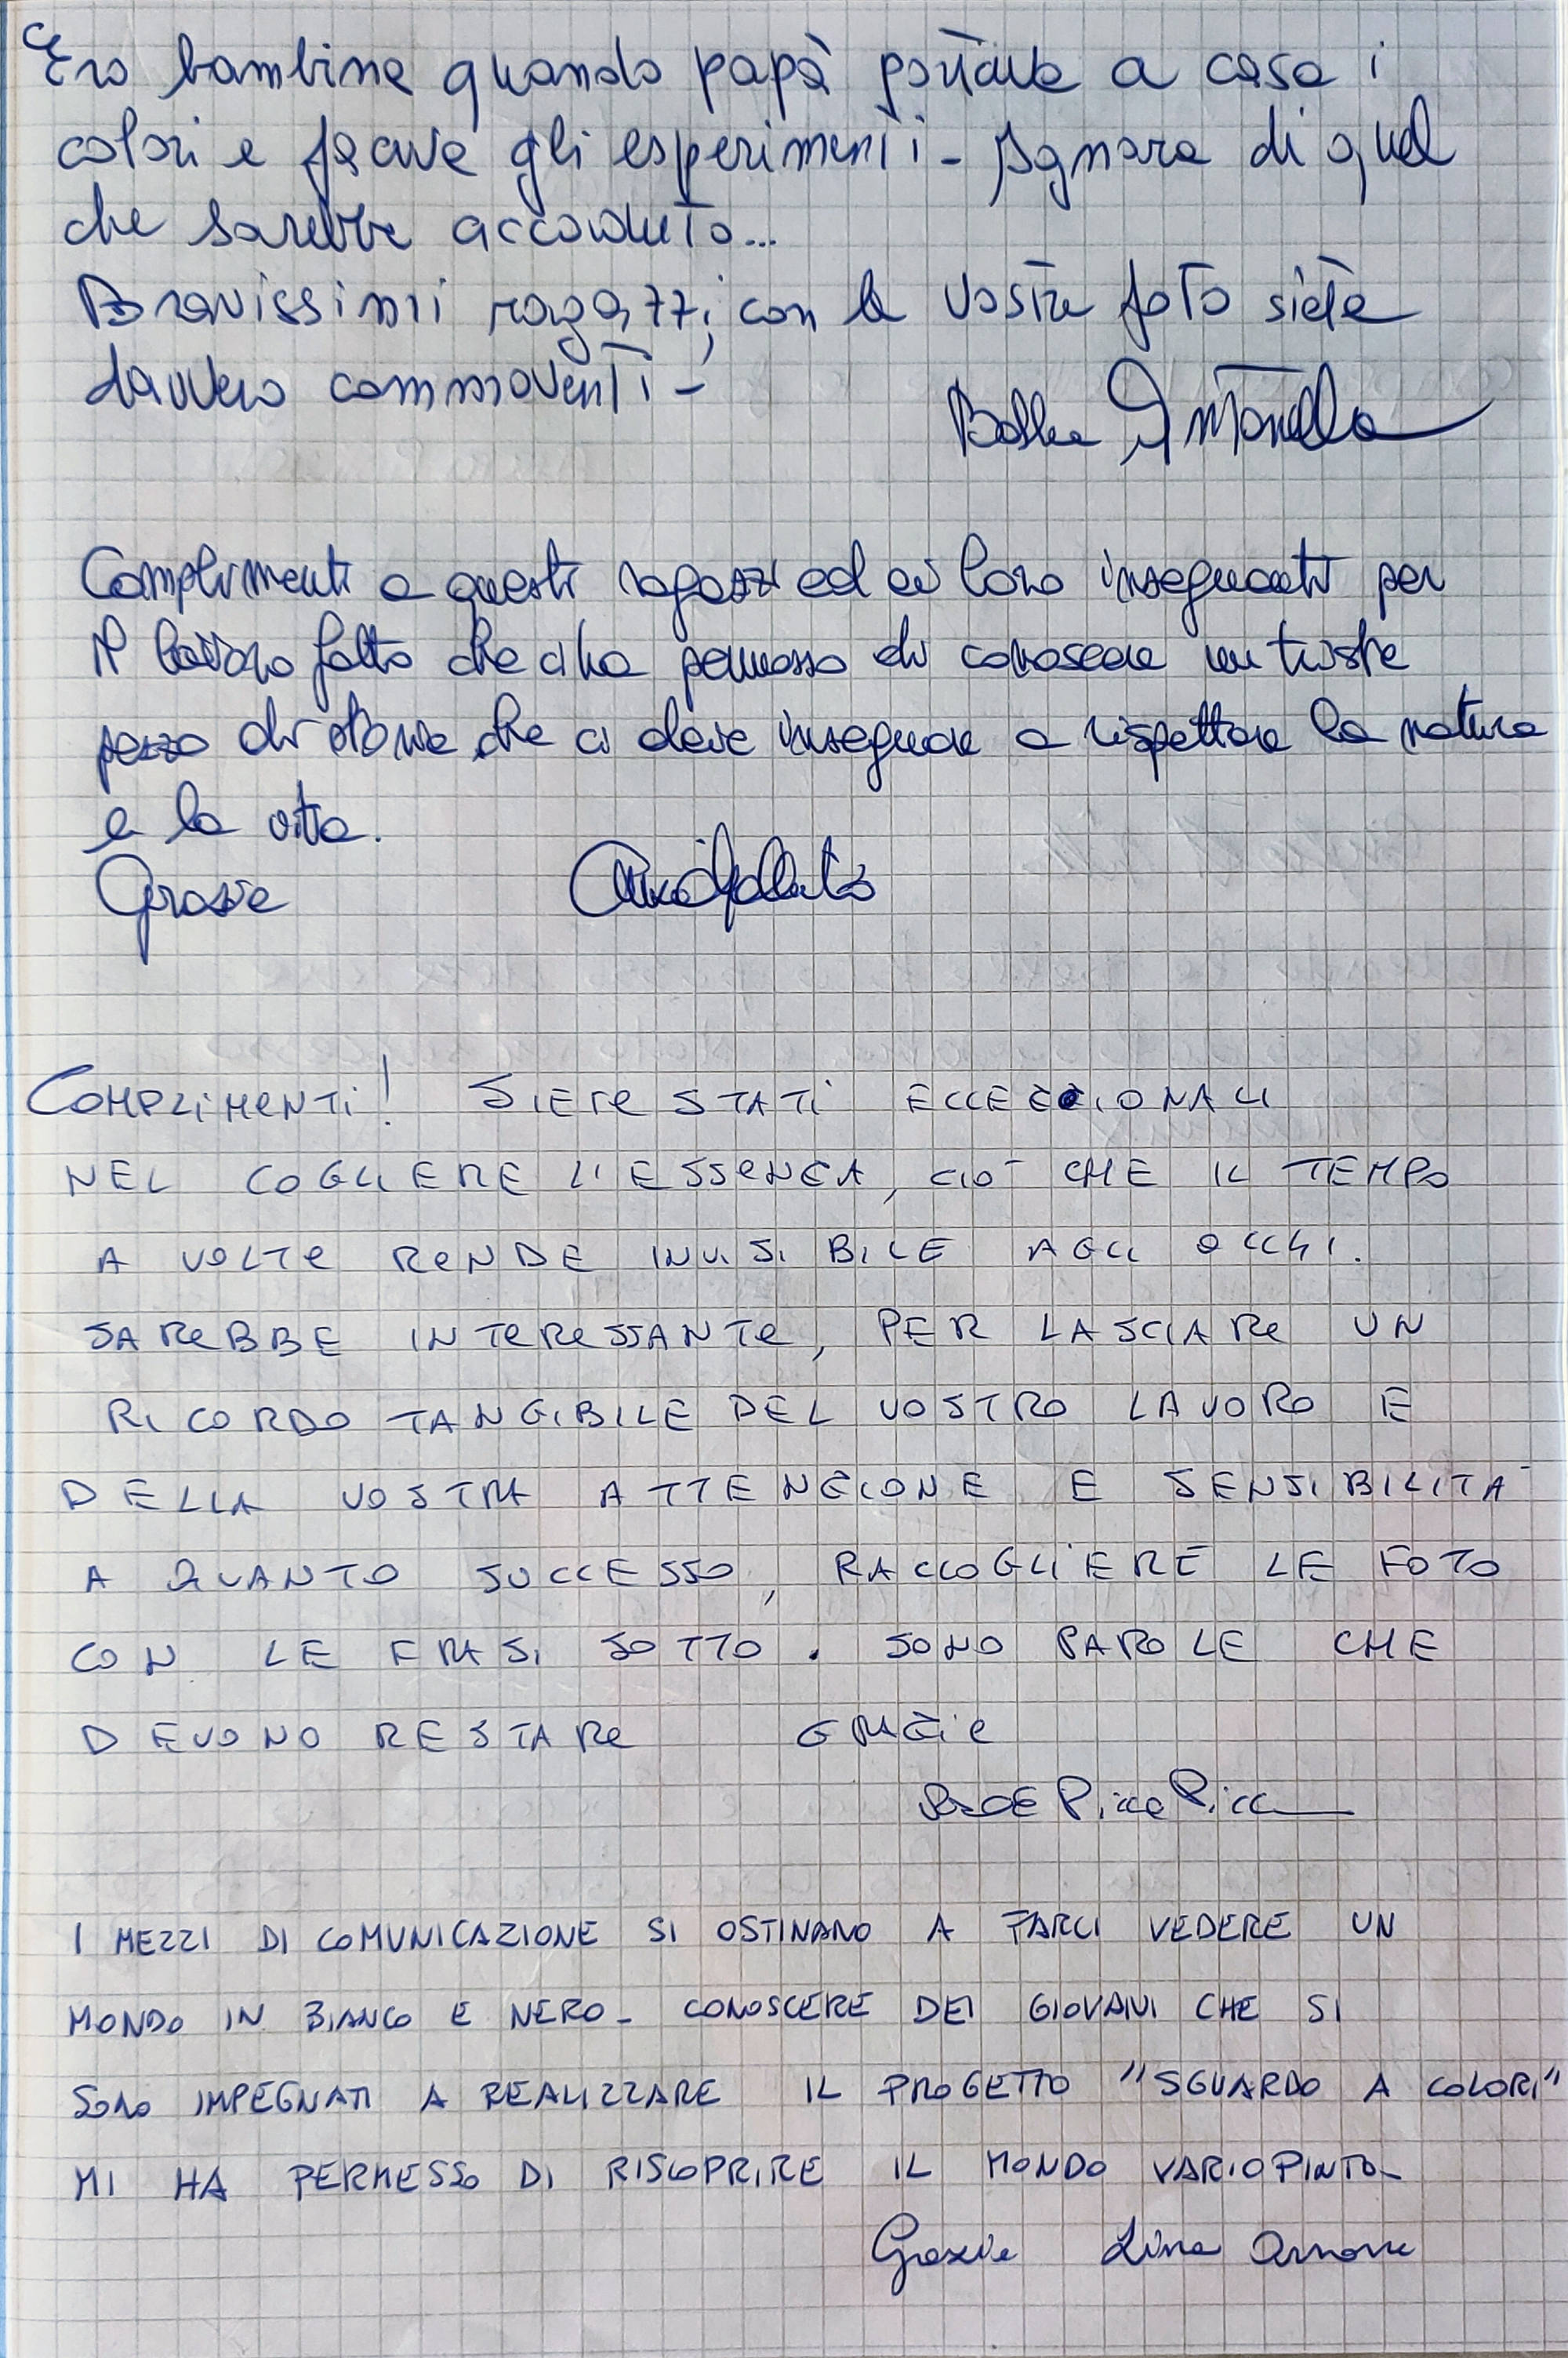 Ero bambina quando papà portava a casa i
colori e faceva gli esperimenti - Ignara di quel
che sarebbe accaduto...
Bravissimi ragazzi, con le vostre foto siete
davvero commoventi -
Antonella
Complimenti a questi ragazzi ed ai loro insegnanti per
il lavoro fatto che ci ha permesso di conoscere un triste
pezzo di storia che ci deve insegnare a rispettare la natura
e la vita.
Grazie
COMPLIMENTI! SIETE STATI ECCEZIONALI
NEL COGLIERE L'ESSENZA, CIO' CHE IL TEMPO
A VOLTE RENDE INVISIBILE AGLI OCCHI.
SAREBBE INTERESSANTE, PER LASCIARE UN
RICORDO TANGIBILE DEL VOSTRO LAVORO E
DELLA VOSTRA ATTENZIONE E SENSIBILITA'
A QUANTO SUCCESSO, RACCOGLIERE LE FOTO
CON LE FRASI SOTTO. SONO PAROLE CHE
DEVONO RESTARE GRAZIE
I MEZZI DI COMUNICAZIONE SI OSTINANO A FARCI VEDERE UN
MONDO IN BIANCO E NERO - CONOSCERE DEI GIOVANI CHE SI
SONO IMPEGNATI A REALIZZARE IL PROGETTO "SGUARDO A COLORI"
MI HA PERMESSO DI RISCOPRIRE IL MONDO VARIOPINTO -
Grazie Lina